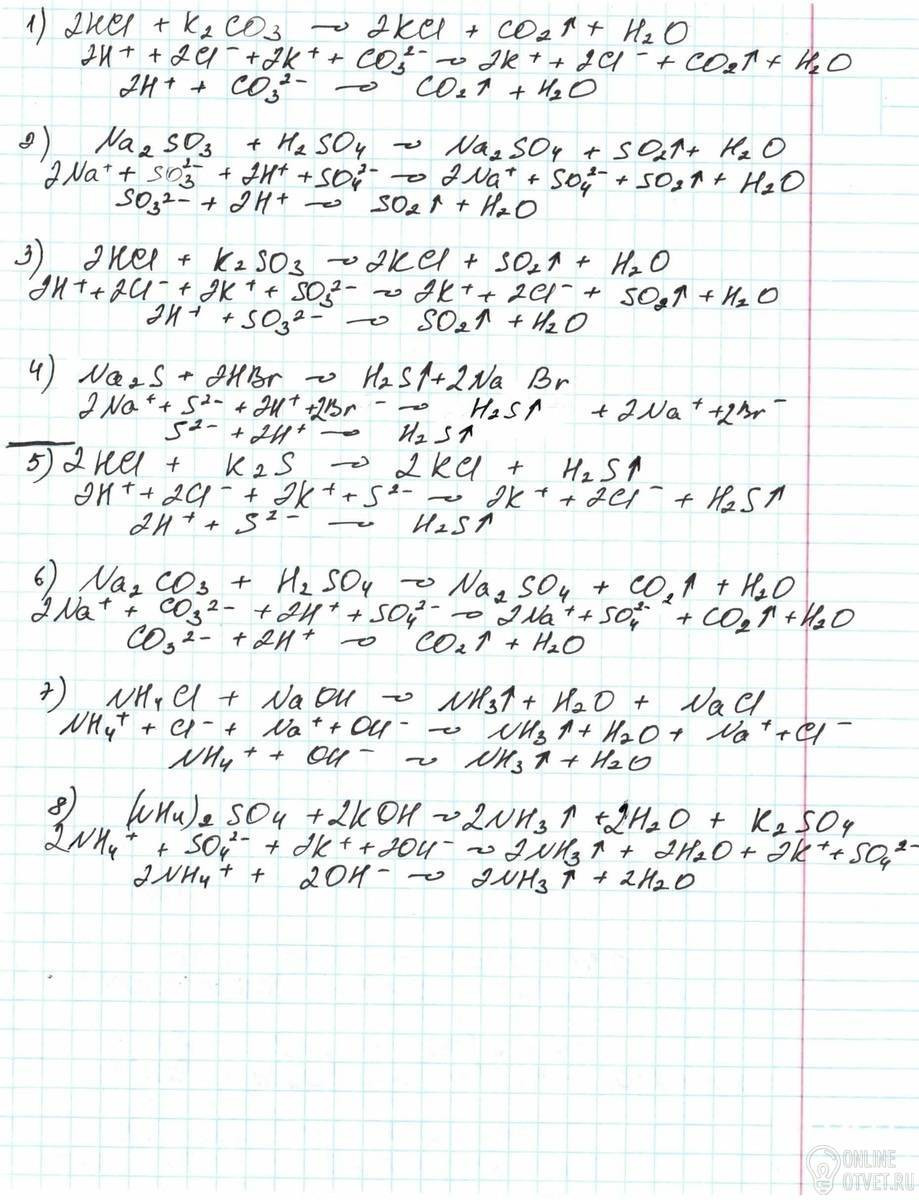 1) 2HCl + K₂CO₃ → 2KCl + CO₂↑ + H₂O
2H⁺ + 2Cl⁻ + 2K⁺ + CO₃²⁻ → 2K⁺ + 2Cl⁻ + CO₂↑ + H₂O
2H⁺ + CO₃²⁻ → CO₂↑ + H₂O
2) Na₂SO₃ + H₂SO₄ → Na₂SO₄ + SO₂↑ + H₂O
2Na⁺ + SO₃²⁻ + 2H⁺ + SO₄²⁻ → 2Na⁺ + SO₄²⁻ + SO₂↑ + H₂O
SO₃²⁻ + 2H⁺ → SO₂↑ + H₂O
3) 2HCl + K₂SO₃ → 2KCl + SO₂↑ + H₂O
2H⁺ + 2Cl⁻ + 2K⁺ + SO₃²⁻ → 2K⁺ + 2Cl⁻ + SO₂↑ + H₂O
2H⁺ + SO₃²⁻ → SO₂↑ + H₂O
4) Na₂S + 2HBr → H₂S↑ + 2NaBr
2Na⁺ + S²⁻ + 2H⁺ + 2Br⁻ → H₂S↑ + 2Na⁺ + 2Br⁻
S²⁻ + 2H⁺ → H₂S↑
5) 2HCl + K₂S → 2KCl + H₂S↑
2H⁺ + 2Cl⁻ + 2K⁺ + S²⁻ → 2K⁺ + 2Cl⁻ + H₂S↑
2H⁺ + S²⁻ → H₂S↑
6) Na₂CO₃ + H₂SO₄ → Na₂SO₄ + CO₂↑ + H₂O
2Na⁺ + CO₃²⁻ + 2H⁺ + SO₄²⁻ → 2Na⁺ + SO₄²⁻ + CO₂↑ + H₂O
CO₃²⁻ + 2H⁺ → CO₂↑ + H₂O
7) NH₄Cl + NaOH → NH₃↑ + H₂O + NaCl
NH₄⁺ + Cl⁻ + Na⁺ + OH⁻ → NH₃↑ + H₂O + Na⁺ + Cl⁻
NH₄⁺ + OH⁻ → NH₃↑ + H₂O
8) (NH₄)₂SO₄ + 2KOH → 2NH₃↑ + 2H₂O + K₂SO₄
2NH₄⁺ + SO₄²⁻ + 2K⁺ + 2OH⁻ → 2NH₃↑ + 2H₂O + 2K⁺ + SO₄²⁻
2NH₄⁺ + 2OH⁻ → 2NH₃↑ + 2H₂O
ONLINE
OTVET.RU